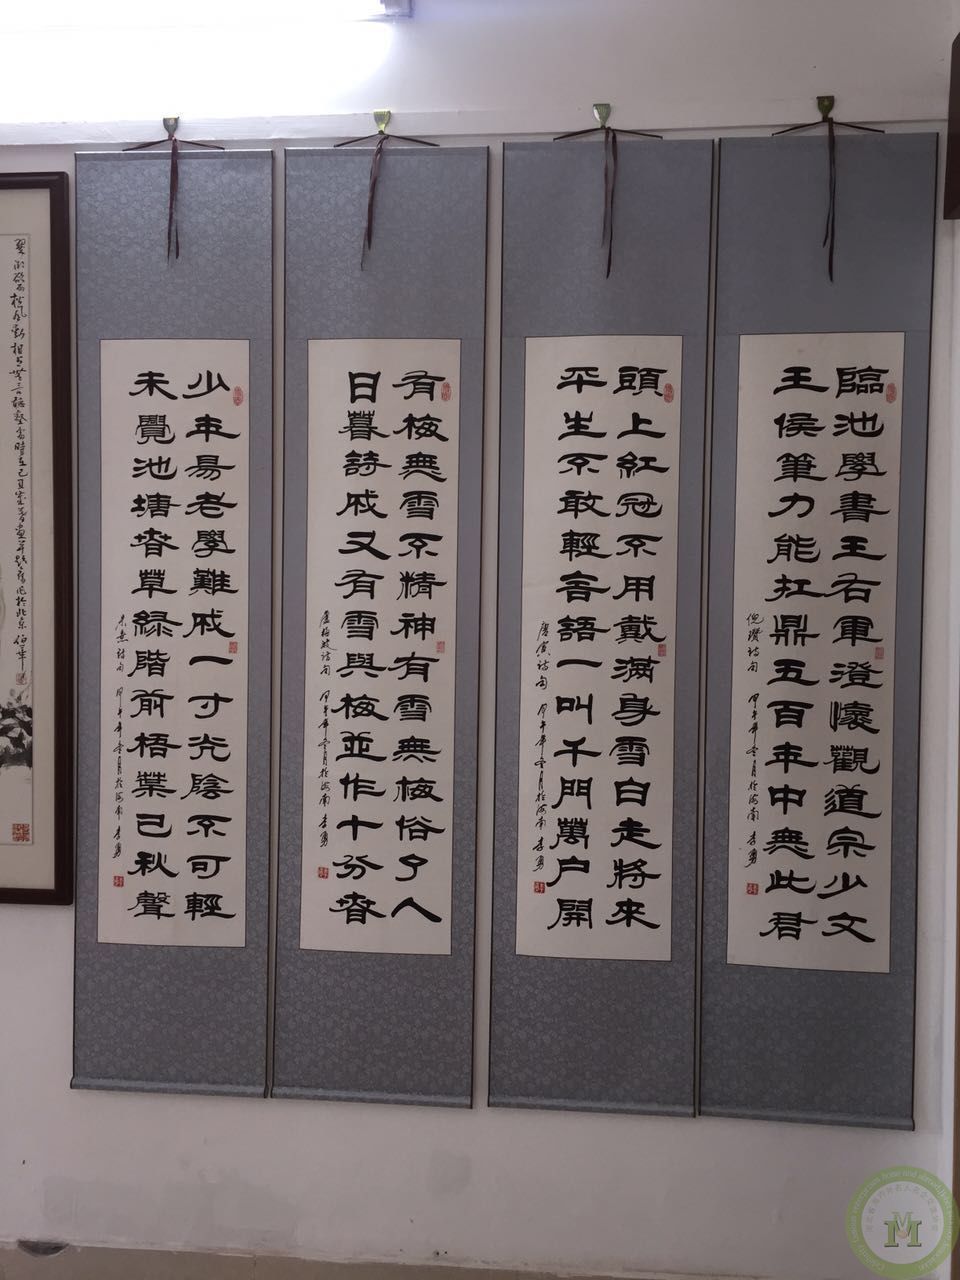 臨池學書王右軍澄懷觀道宗少文
王侯筆力能扛鼎五百年中無此君
倪瓚詩句 甲午年冬月於海南 李勇
頭上紅冠不用戴滿身雪白走將來
平生不敢輕言語一叫千門萬户開
唐寅詩句 甲午年冬月於海南 李勇
有梅無雪不精神有雪無梅俗了人
日暮詩成又有雪與梅並作十分春
盧梅坡詩句 甲午年冬月於海南 李勇
少年易老學難成一寸光陰不可輕
未覺池塘春草綠階前梧葉已秋聲
朱熹詩句 甲午年冬月於海南 李勇